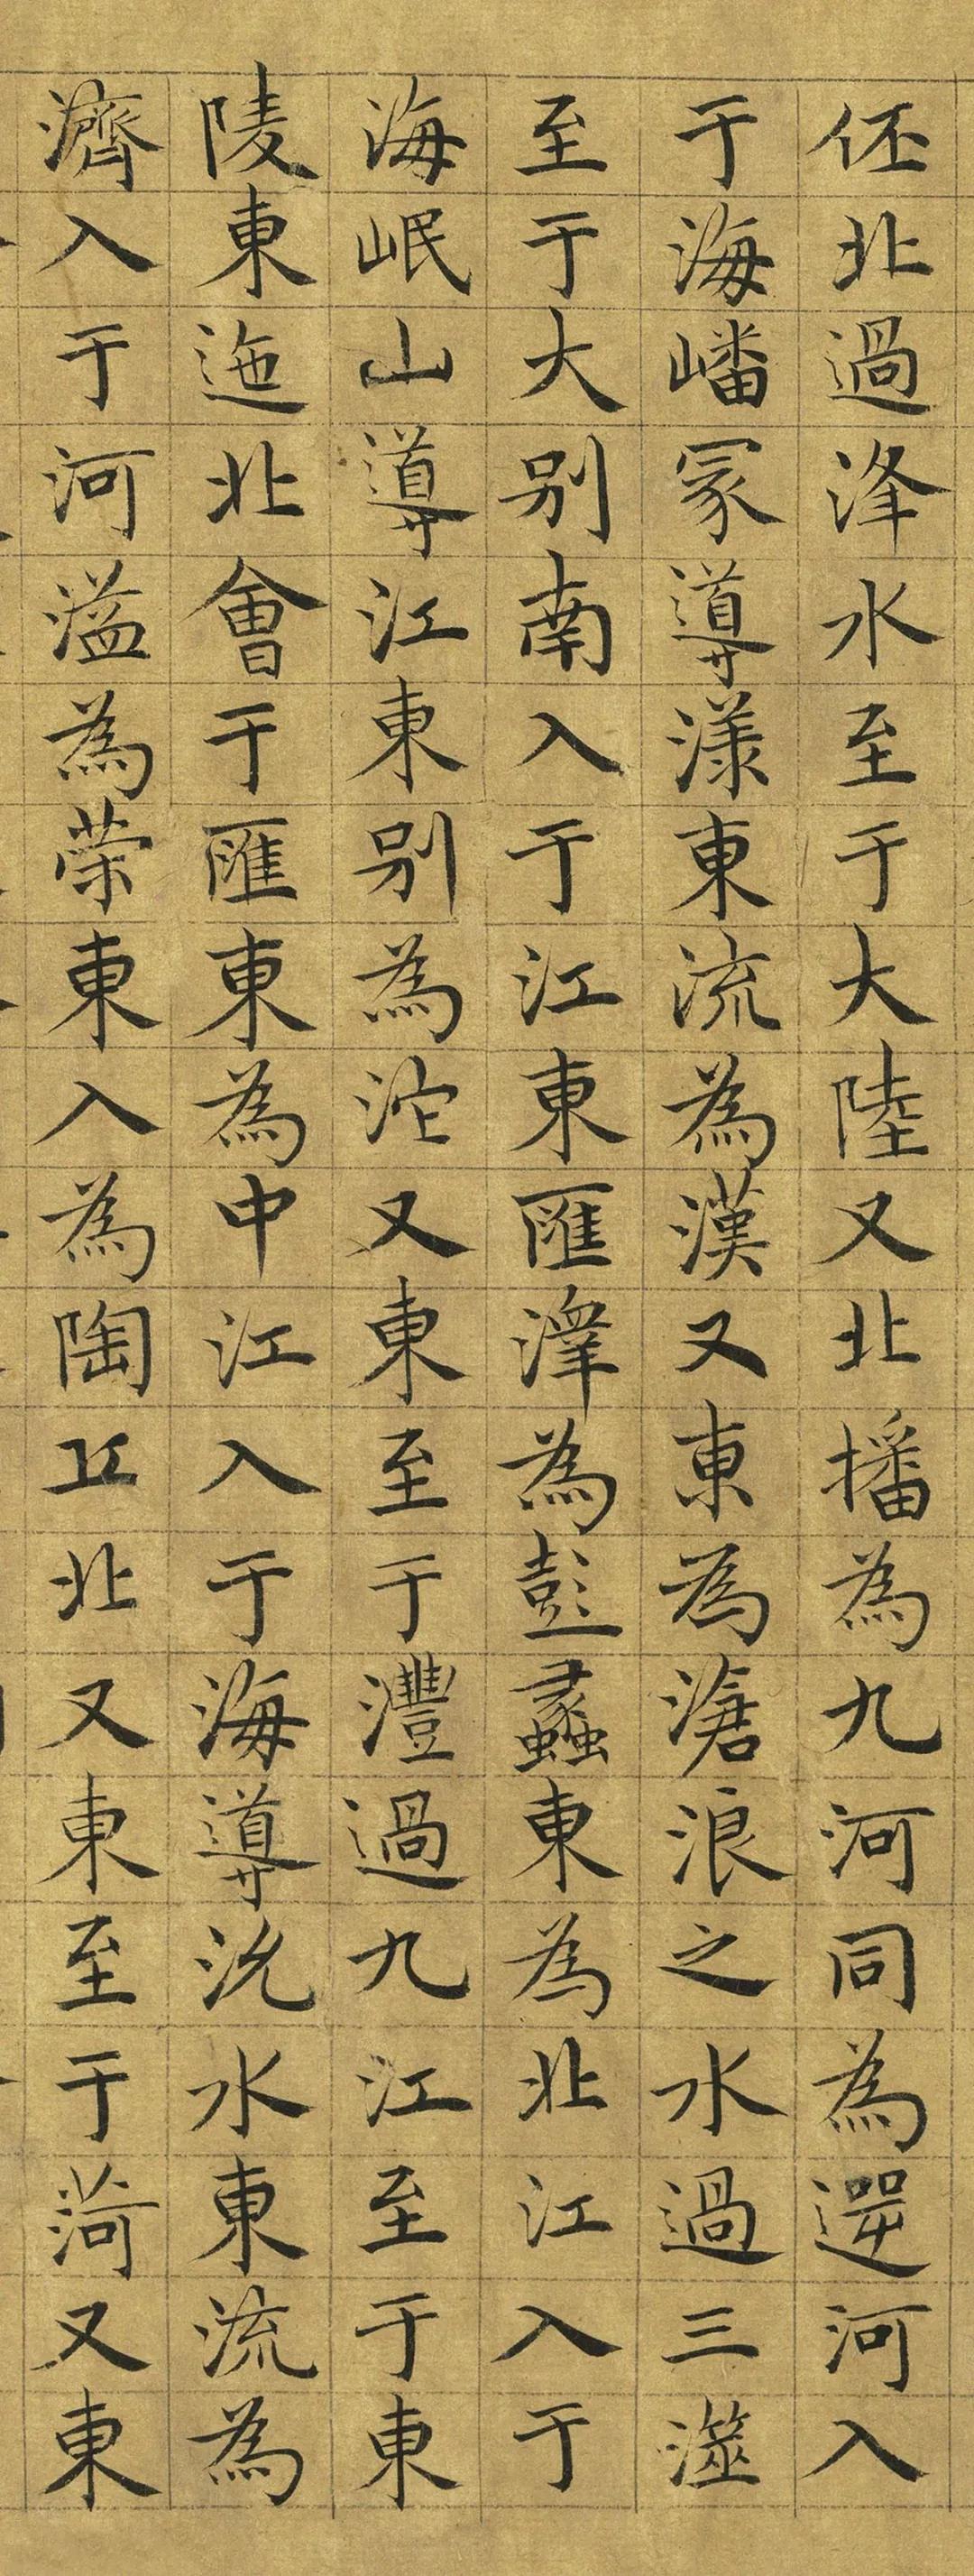 伾北過洚水至于大陸又北播為九河同為逆河入
于海嶓冢導漾東流為漢又東為滄浪之水過三澨
至于大别南入于江東匯澤為彭蠡東為北江入于
海岷山導江東别為沱又東至于澧過九江至于東
陵東迆北會于匯東為中江入于海導沇水東流為
濟入于河溢為荣東入為陶丘北又東至于菏又東